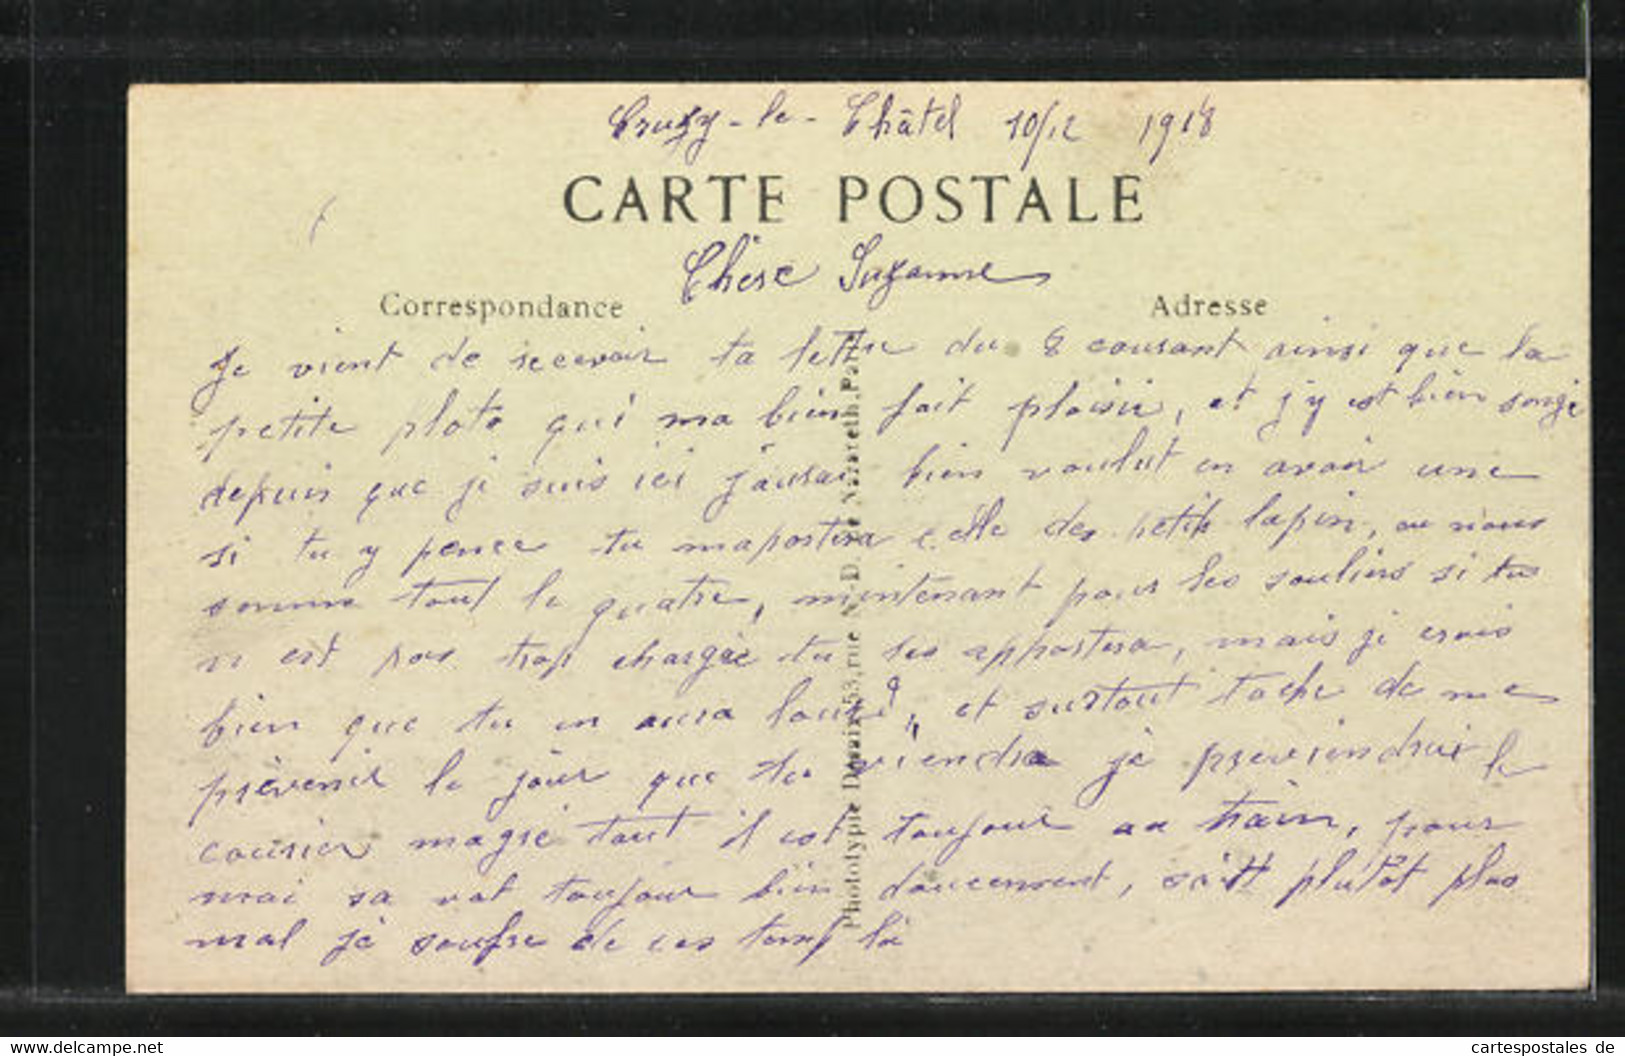 Cruzy-le-Châtel 10/12 1918
CARTE POSTALE
Chère Suzanne
Correspondance
Adresse
Je vient de recevoir ta lettre du 8 courant ainsi que la
petite photo qui ma bien fait plaisir, et j'y est bien songé
depuis que je suis ici j'aurai bien voulut en avoir une
si tu y pence tu maportera celle des petits lapin, ou nous
somme tout le quatre, mintenant pour les souliers si tu
n est pas trop chargée tu les apportera, mais je crois
bien que tu en aura lourd, et surtout tache de me
prévenir le jour que tu viendra je previendrai le
courier magré tout il est toujour au train, pour
moi sa vat toujour bien doucement, plutôt plus
mal je soufre de ces temp là
Phototypie 53, rue N.-D. de Nazareth, Paris
www.delcampe.net
cartespostales de